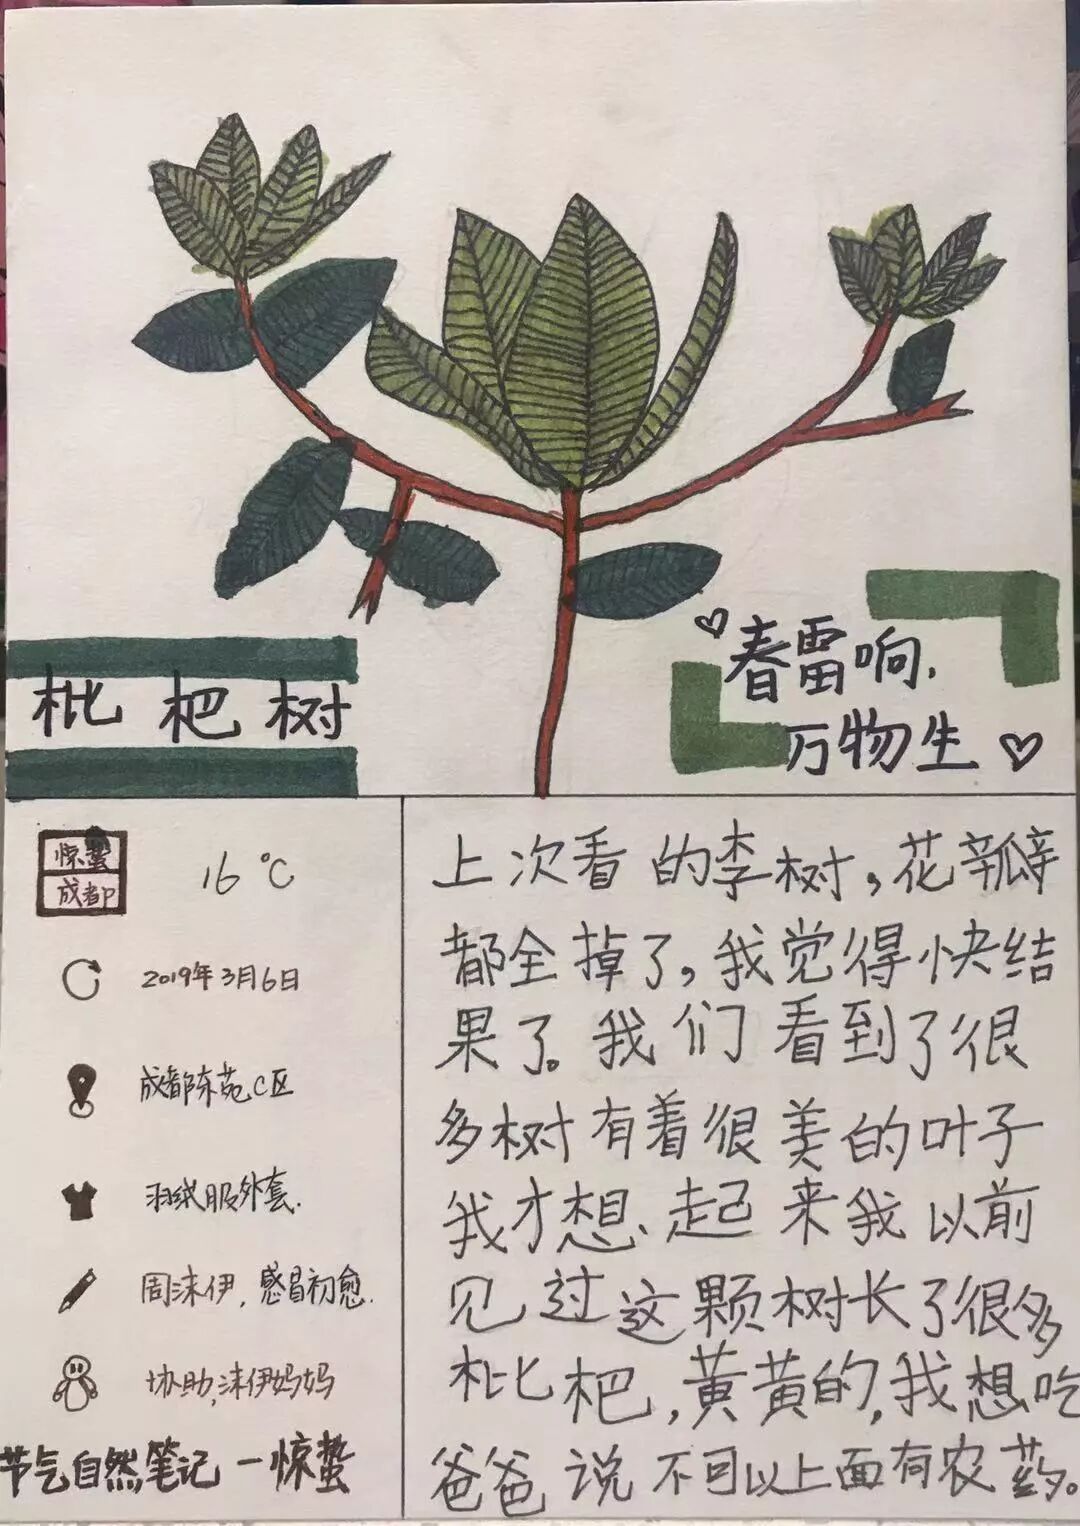 枇杷树
春雷响,
万物生
惊蛰
成都
16℃
2019年3月6日
成都东苑C区
羽绒服外套.
周沫伊,感冒初愈.
协助,沫伊妈妈
节气自然笔记一惊蛰
上次看的李树,花瓣
都全掉了,我觉得快结
果了。我们看到了很
多树有着很美的叶子
我才想、起来我以前
见过这颗树长了很多
枇杷,黄黄的,我想吃
爸爸说不可以上面有农药。